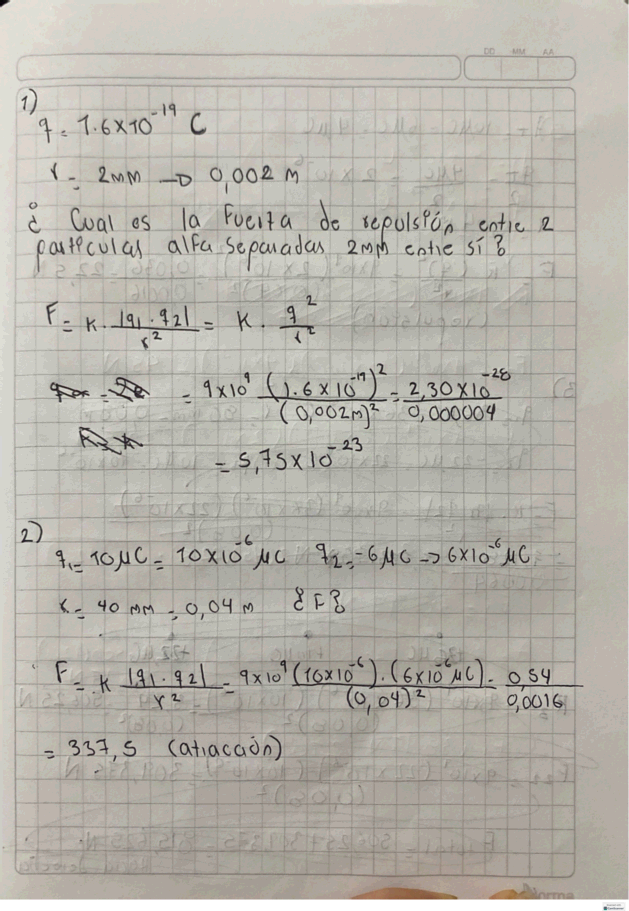 DD MM AA
1)
q = 1.6x10^-19 C
r = 2mm → 0,002 m
¿ Cual es la Fuerza de repulsión entre 2
partículas alfa separadas 2mm entre sí?
F = K · |q1 · q2| / r^2 = K · q^2 / r^2
= 9x10^9 (1.6x10^-19)^2 / (0,002m)^2 = 2,30x10^-28 / 0,000004
= 5,75x10^-23
2)
q1 = 10μC = 10x10^-6 μC q2 = -6μC → 6x10^-6 μC
r = 40 mm = 0,04 m ¿F?
F = K |q1 · q2| / r^2 = 9x10^9 (10x10^-6) · (6x10^-6 μC) / (0,04)^2 = 0,54 / 0,0016
= 337,5 (atracción)
Norma